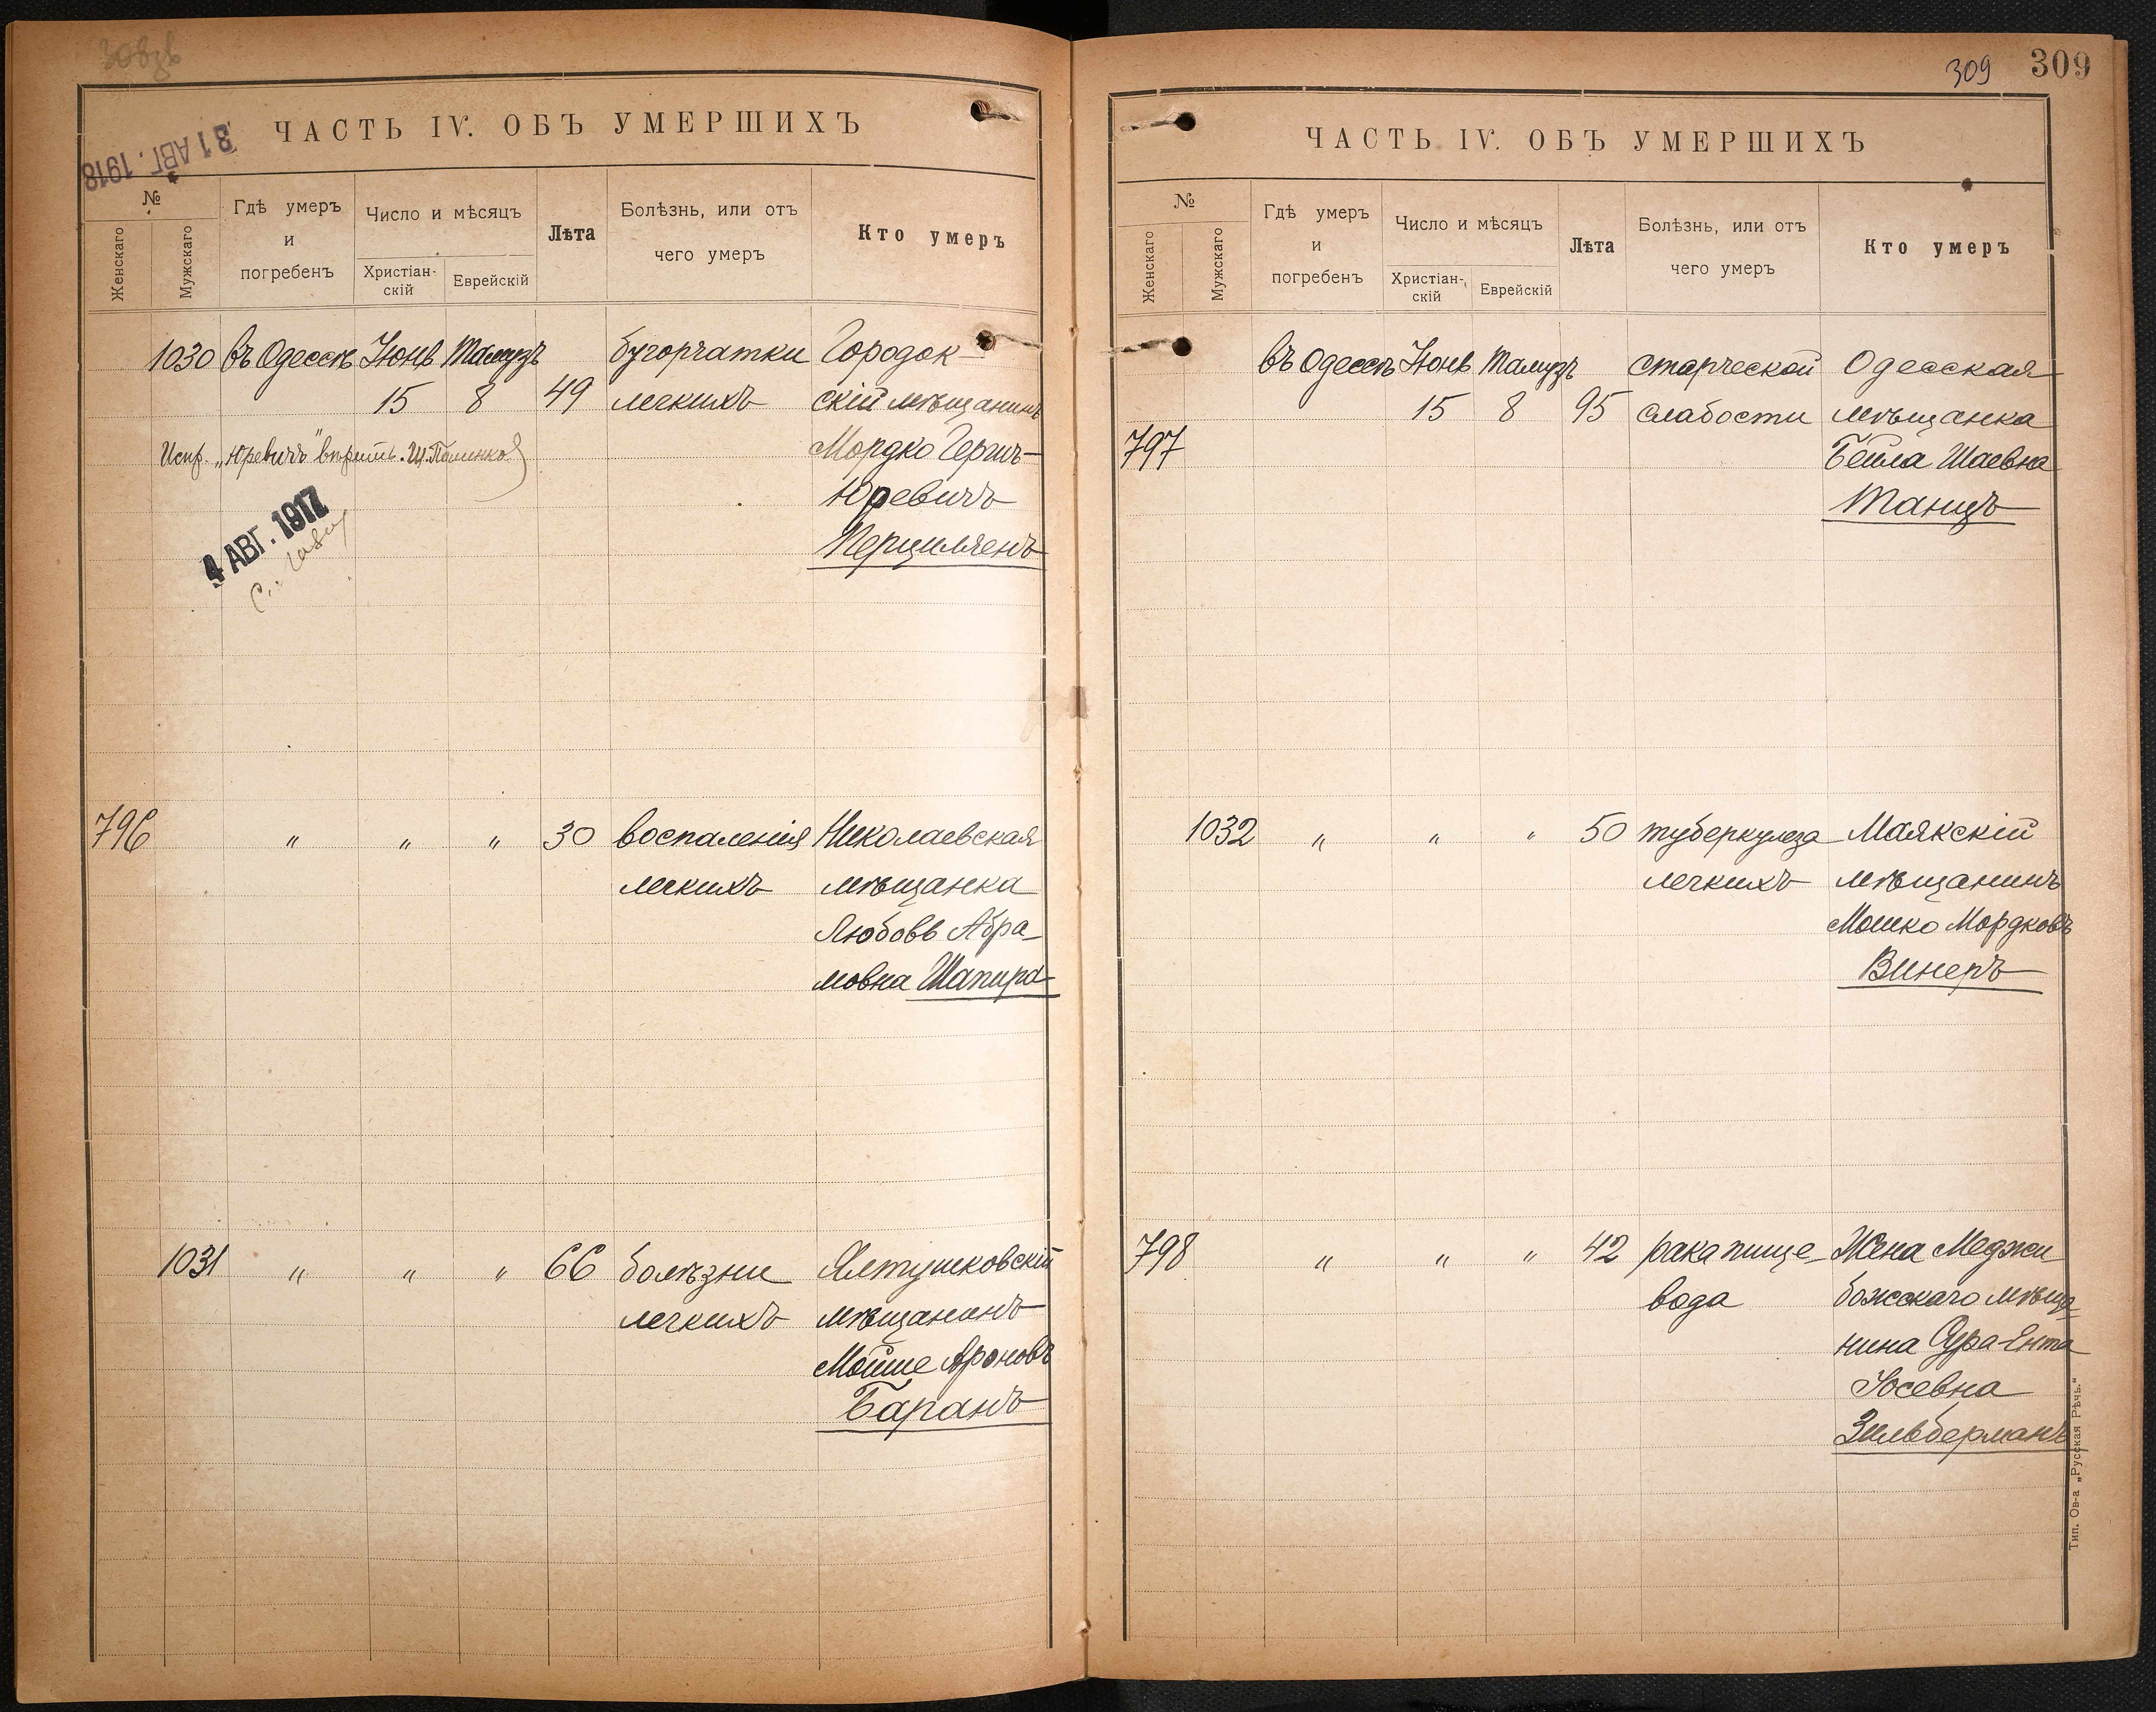 308зв
ЧАСТЬ IV. ОБЪ УМЕРШИХЪ
31 АВГ. 1918
№
Женскаго
Мужскаго
Гдѣ умеръ
и
погребенъ
Число и мѣсяцъ
Христіан-
скій
Еврейскій
Лѣта
Болѣзнь, или отъ
чего умеръ
Кто умеръ
1030 въ Одессѣ Іюнь Тамузъ бугорчатки Городок-
15 8 49 легкихъ скій мѣщанинъ
Испр. „Юревичъ" вѣрить. Мордко Герш-
Юревичъ
Перцилленъ
4 АВГ. 1917
796 „ „ „ 30 воспаленія Николаевская
легкихъ мѣщанка
Любовь Абра-
мовна Шапира
1031 „ „ „ 66 болѣзни Ялтушковскій
легкихъ мѣщанинъ
Мойше Ароновъ
Баранъ
309 309
ЧАСТЬ IV. ОБЪ УМЕРШИХЪ
№
Женскаго
Мужскаго
Гдѣ умеръ
и
погребенъ
Число и мѣсяцъ
Христіан-
скій
Еврейскій
Лѣта
Болѣзнь, или отъ
чего умеръ
Кто умеръ
въ Одессѣ Іюнь Тамузъ старческой Одесская
15 8 95 слабости мѣщанка
797 Бейла Шаевна
Танцъ
1032 „ „ „ 50 туберкулеза Маякскій
легкихъ мѣщанинъ
Мошко Мордковъ
Винеръ
798 „ „ „ 42 рака пище- Жена Меджи
вода божскаго мѣща-
нина Сура-Ента
Іосевна
Зильберманъ
Тип. Ов-а „Русская Рѣчь."